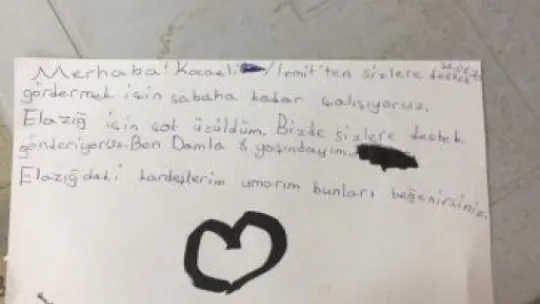 Merhaba! Kocaeli /İzmit'ten sizlere destek
göndermek için sabaha kadar çalışıyoruz.
Elazığ için çok üzüldüm. Bizde sizlere destek
gönderiyoruz. Ben Damla 8 yaşındayım.
Elazığdaki kardeşlerim umarım bunları beğenirsiniz.